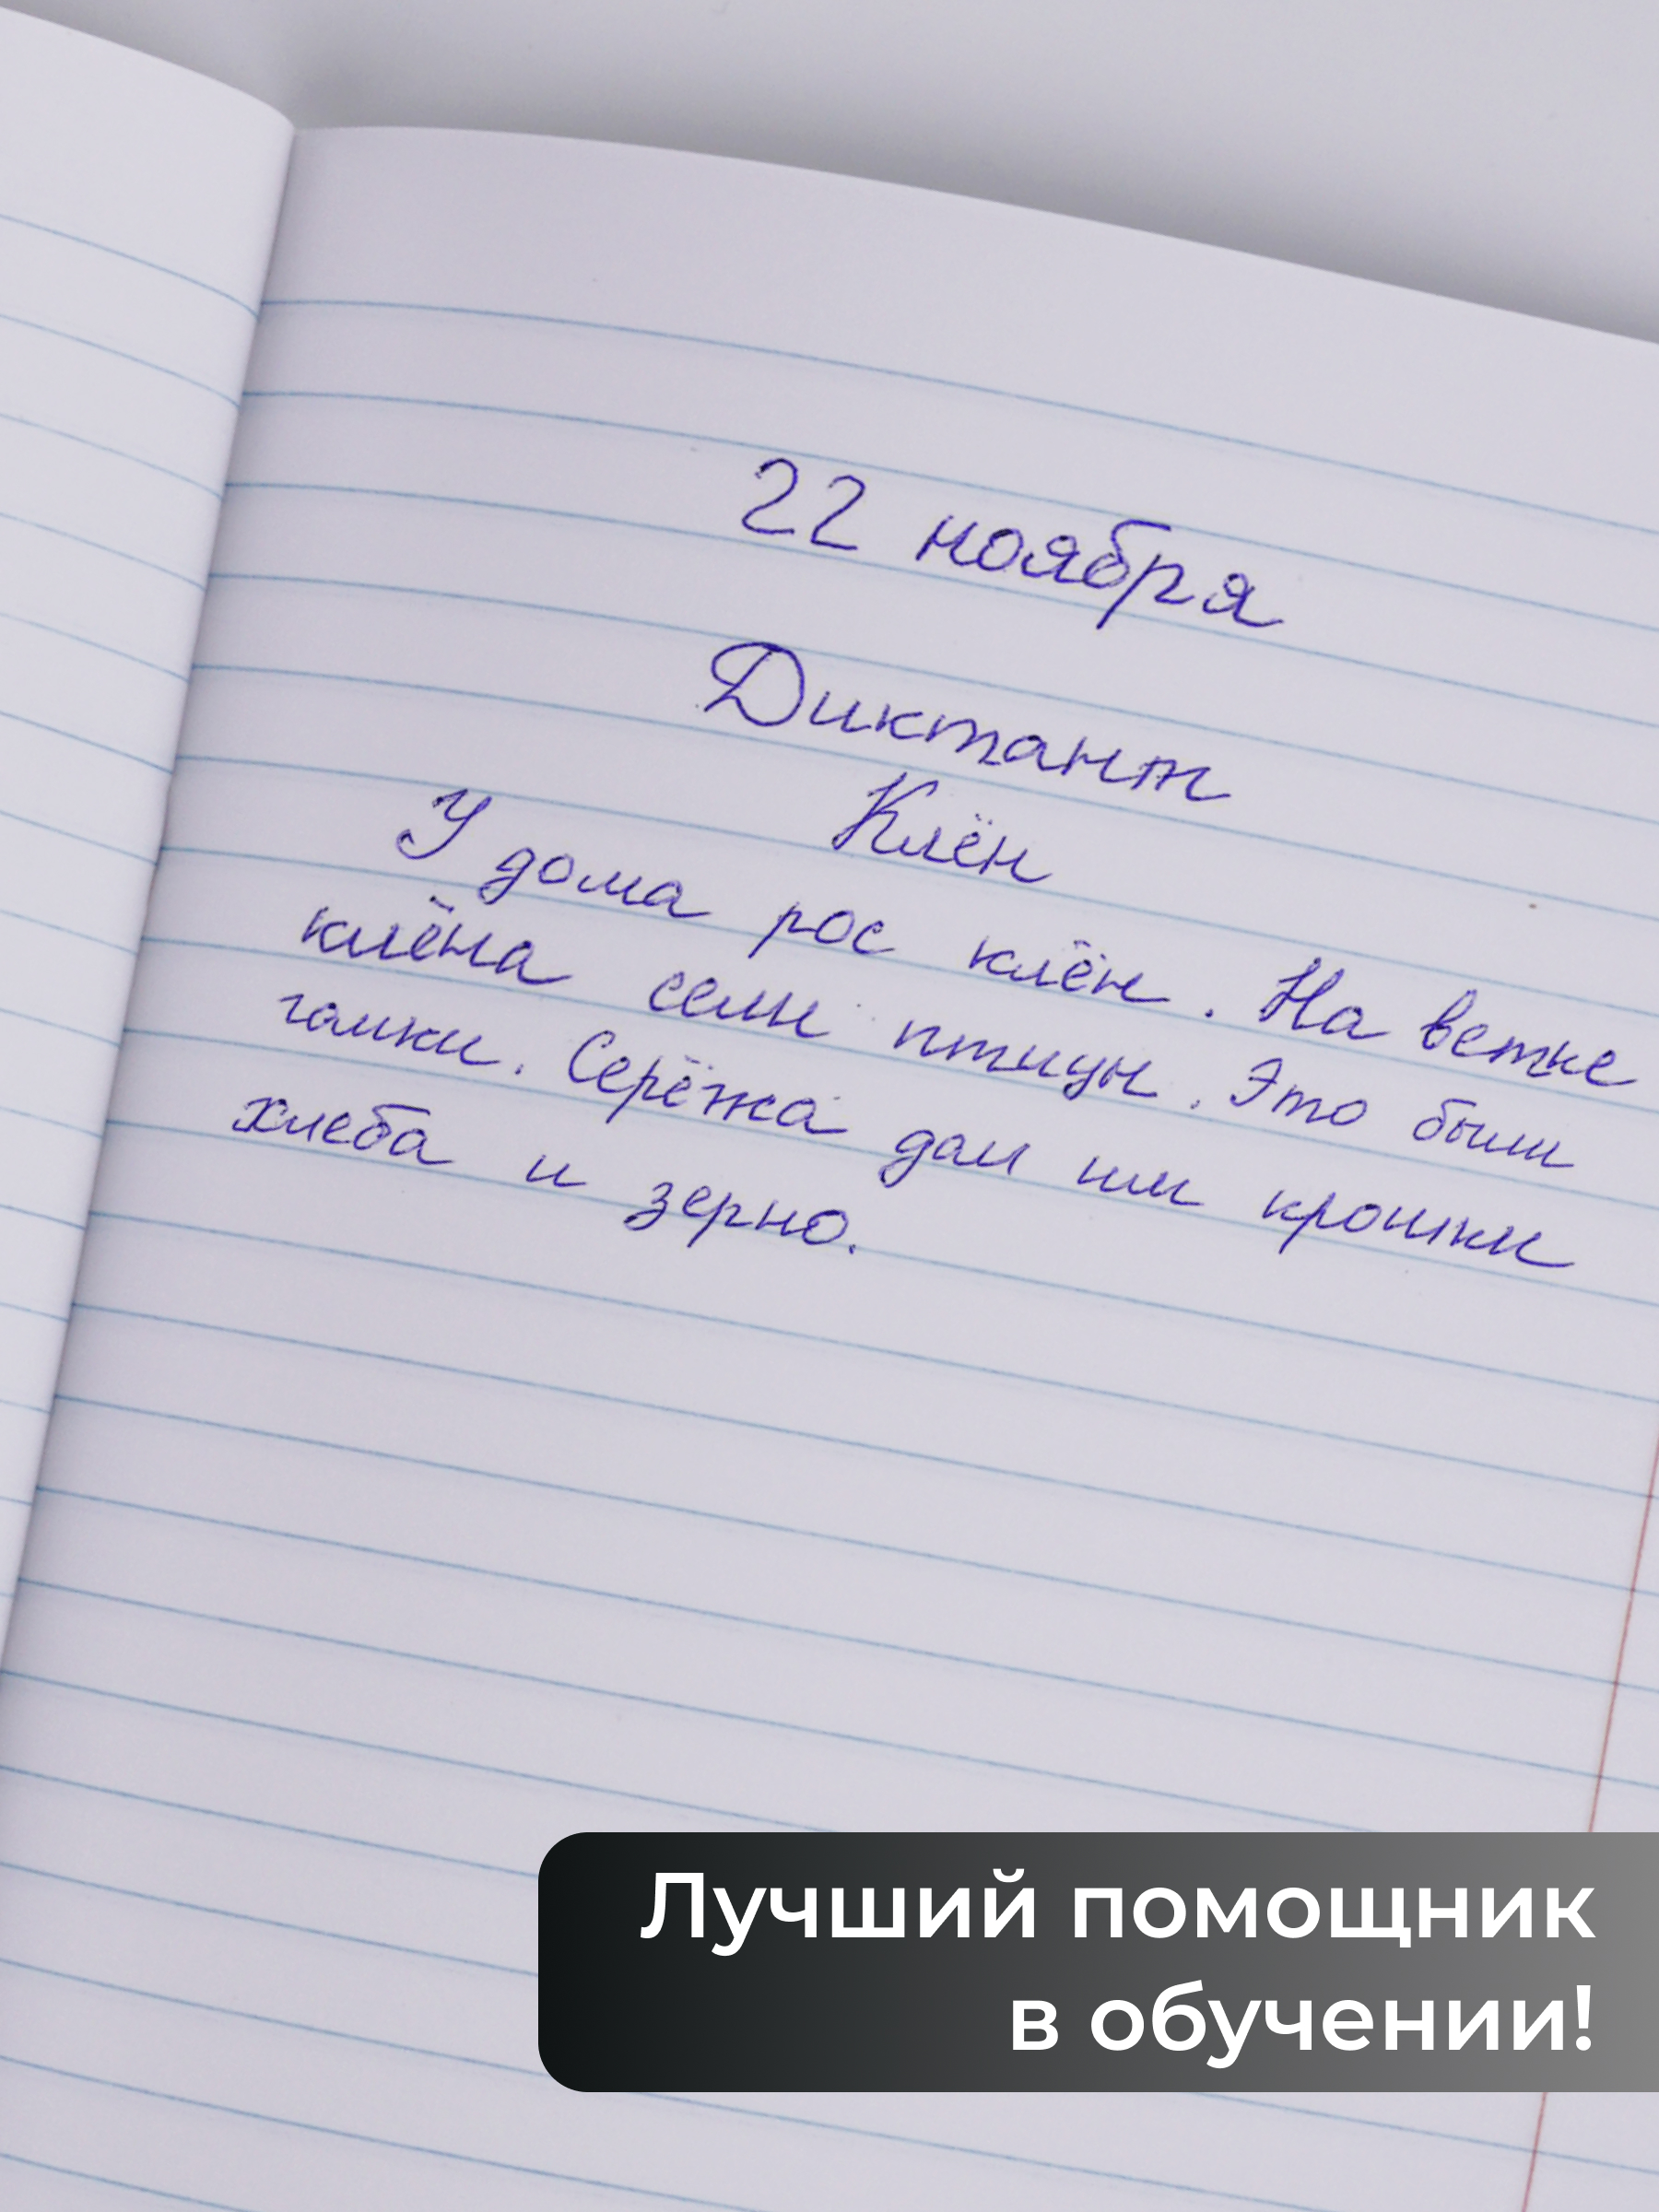 22 ноября
Диктант
Клён
У дома рос клён. На ветке
клёна сели птицы. Это были
галки. Серёжа дал им крошки
хлеба и зерно.
Лучший помощник
в обучении!